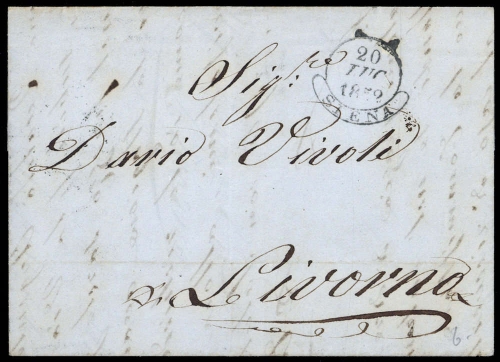 20
LUG
SIENA
Sig.re
Dario Vivoli
Livorno
6.